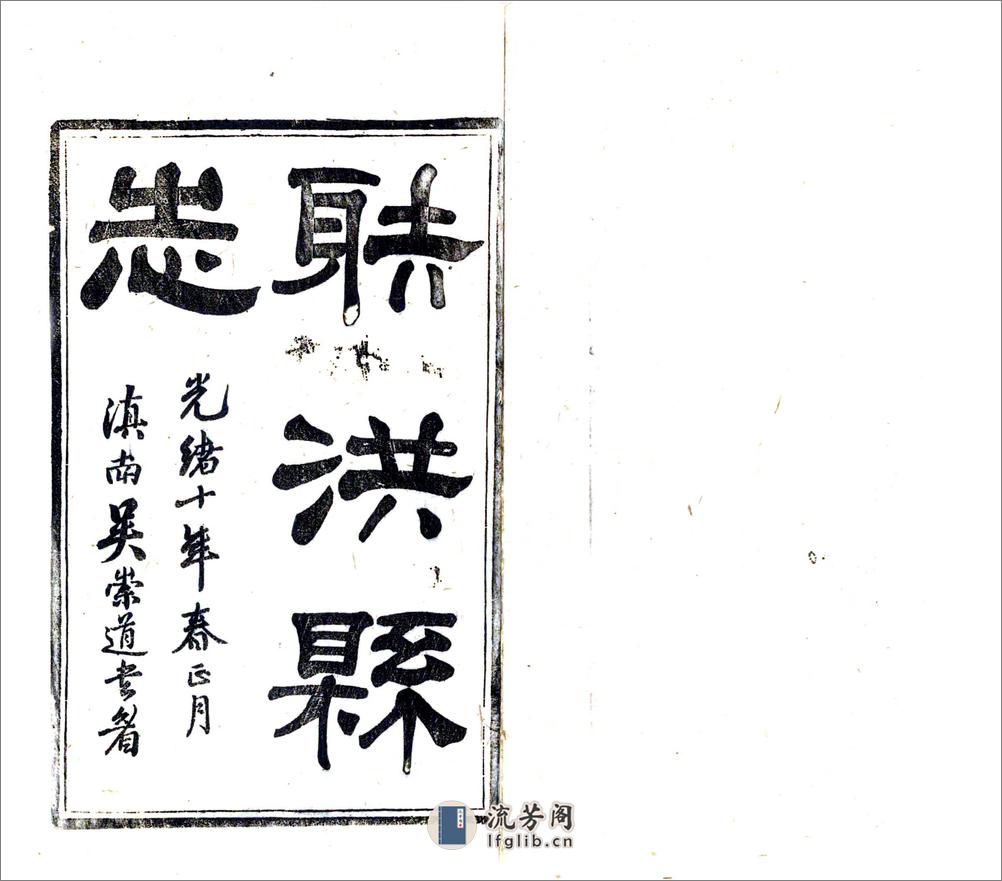 射洪縣
志
光緒十年春正月
滇南吳崇道書
流芳阁
lfglib.cn